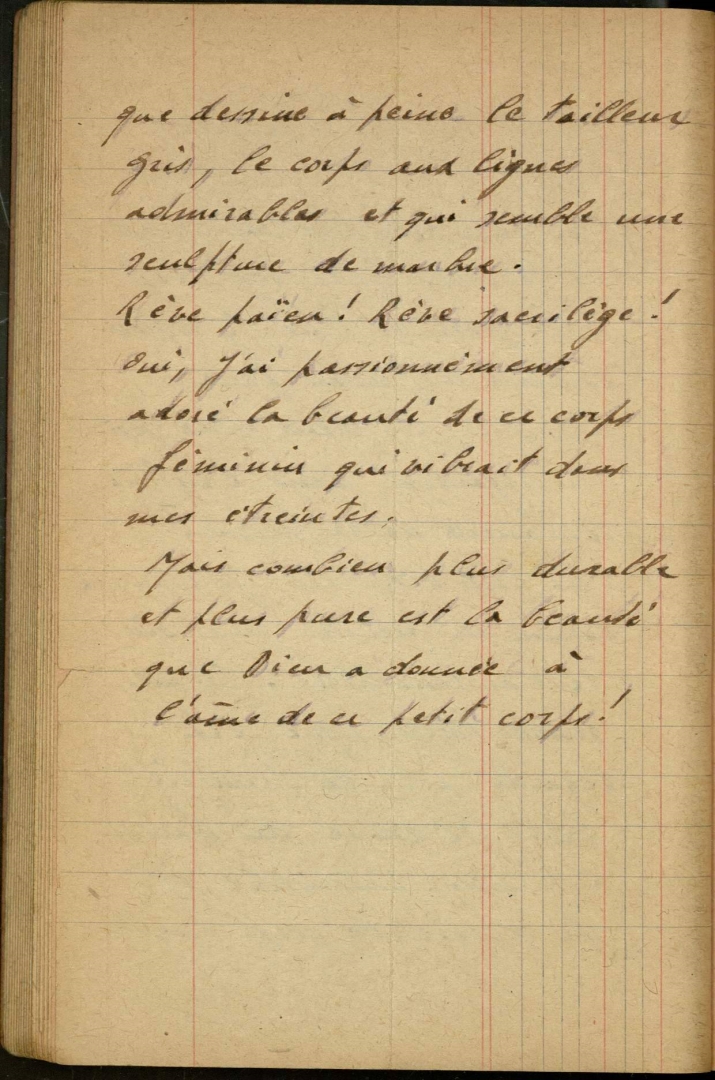 que dessine à peine le tailleur
gris, le corps aux lignes
admirables et qui semble une
sculpture de marbre.
Rêve païen ! Rêve sacrilège !
Oui, j'ai passionnément
adoré la beauté de ce corps
féminin qui vibrait dans
mes étreintes.
Mais combien plus durable
et plus pure est la beauté
que Dieu a donnée à
l'âme de ce petit corps !